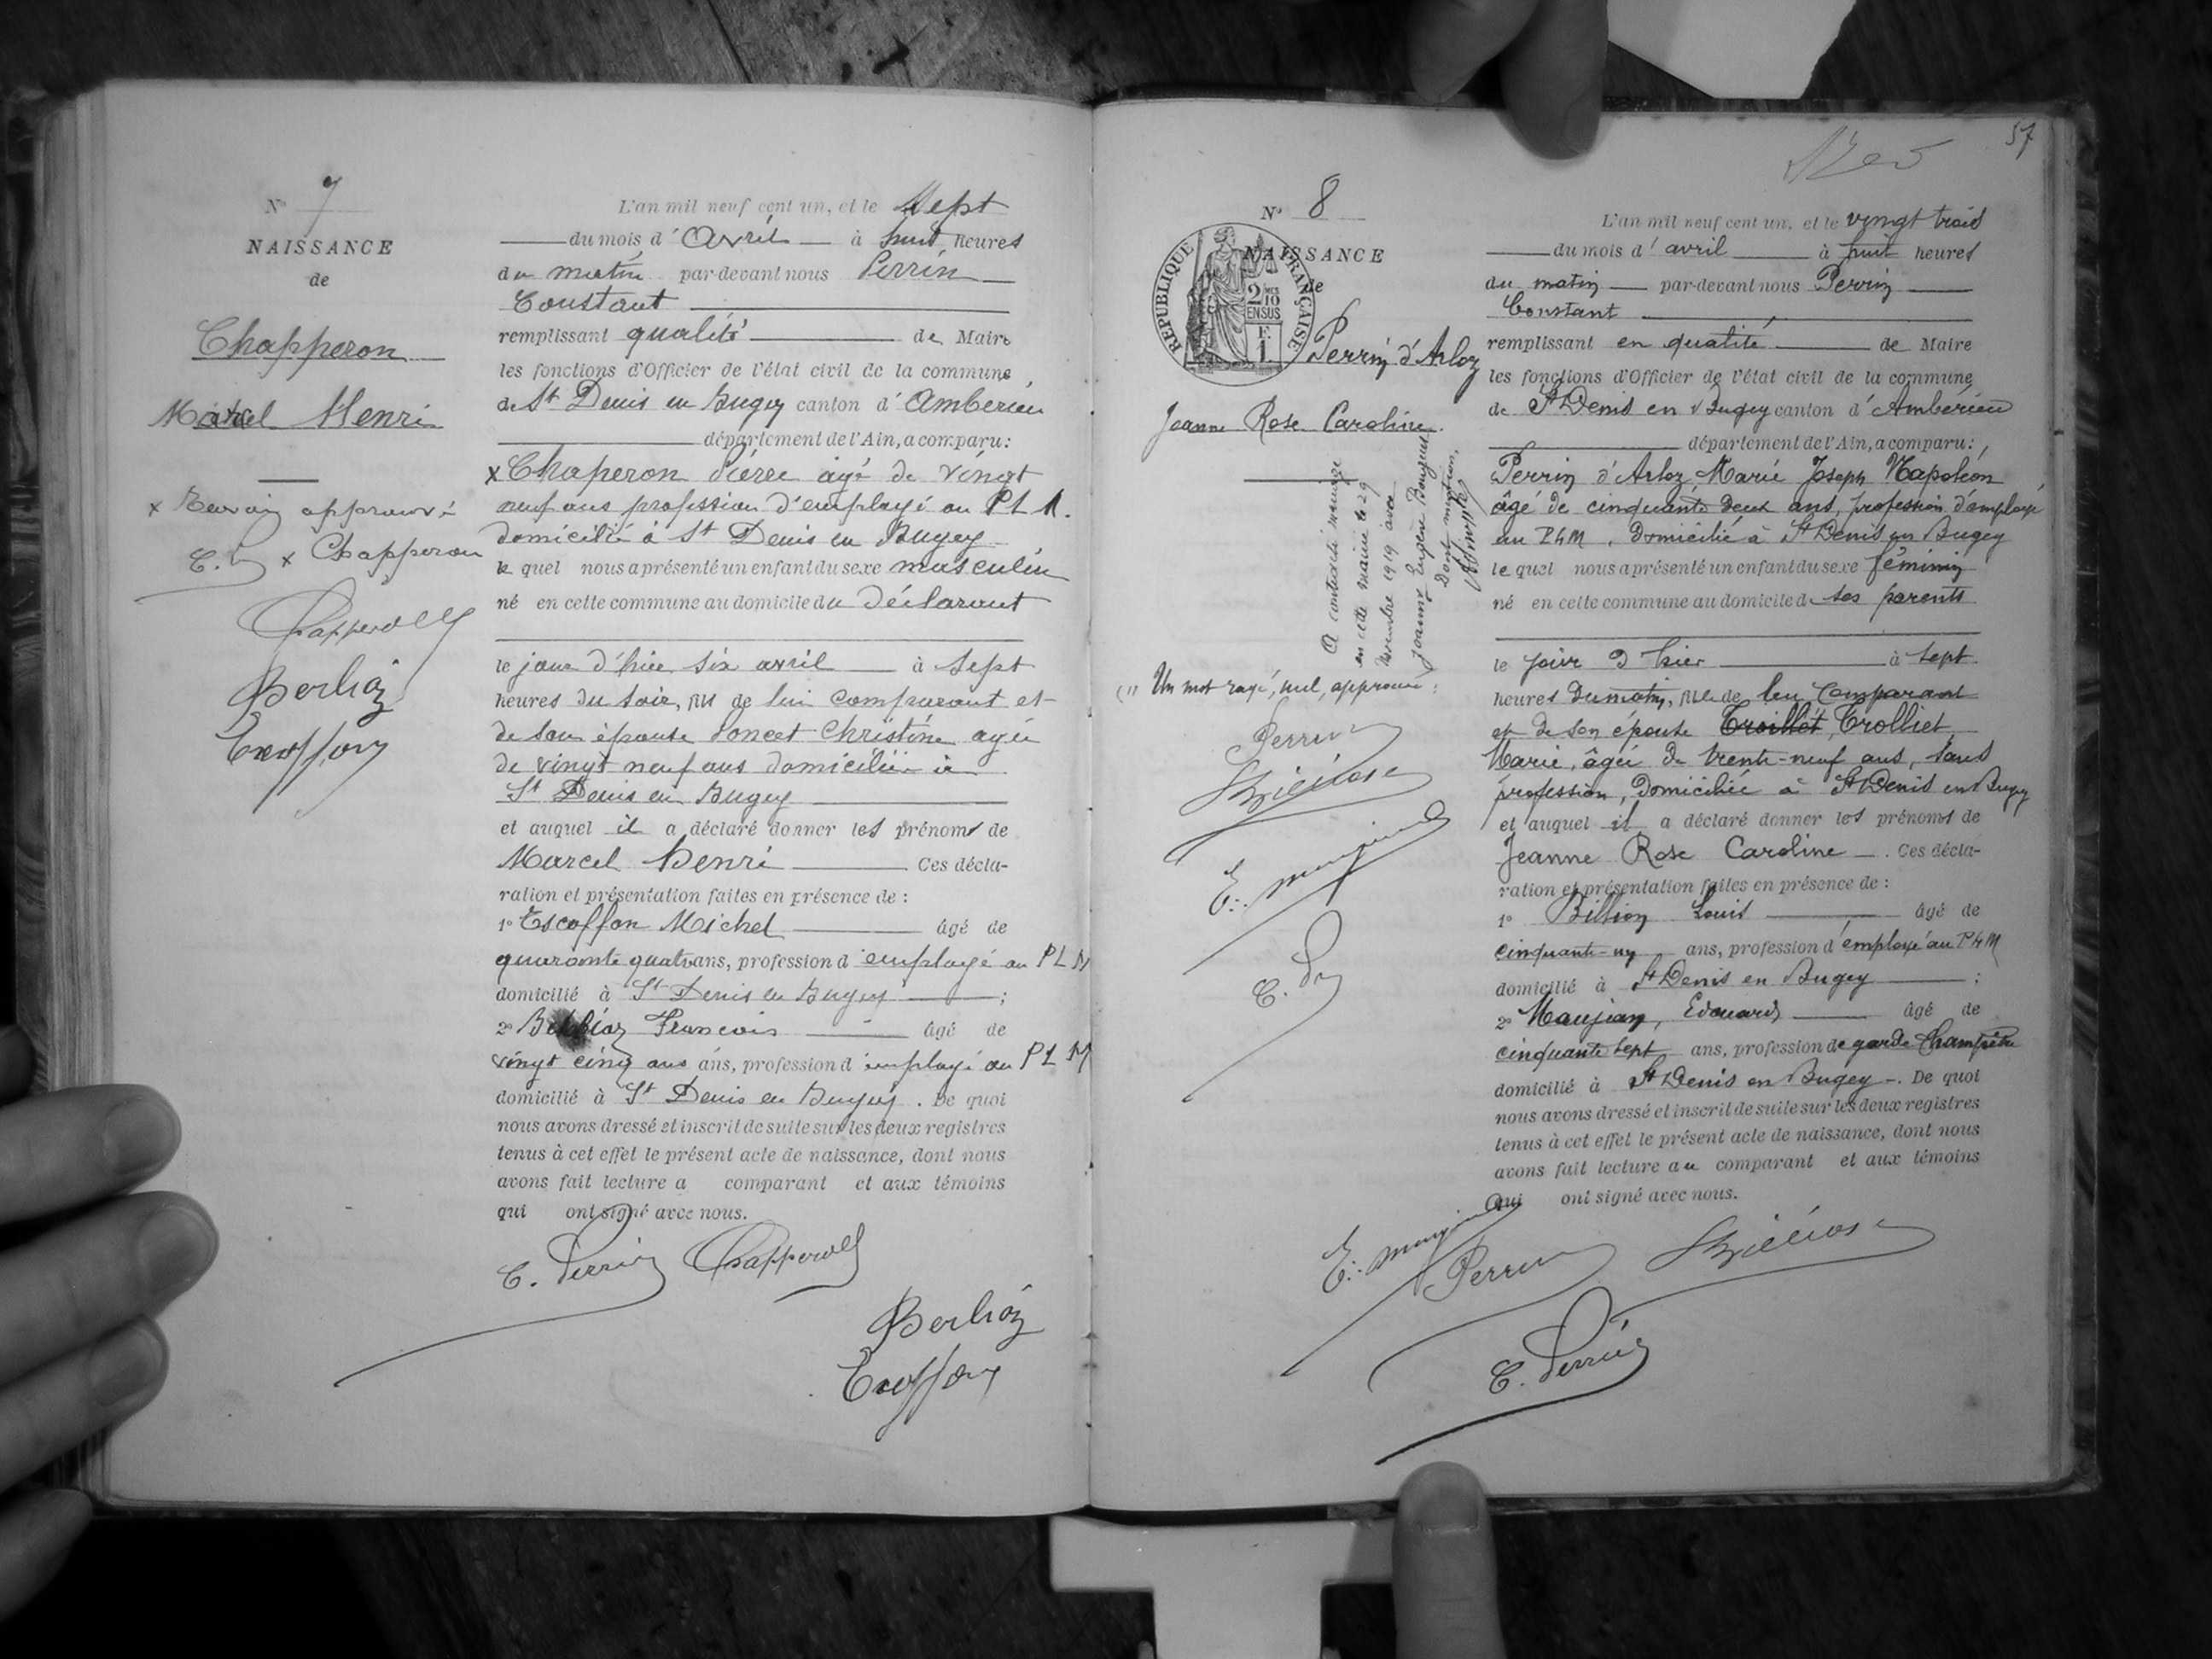 N° 7
NAISSANCE
de
Chapperon
Marcel Henri
x Renvoi approuvé
C. P x Chapperon
Chapperon
Berlioz
Escoffon
L'an mil neuf cent un, et le Sept
du mois d'Avril à huit heures
du matin par-devant nous Perrin
Constant
remplissant qualité de Maire
les fonctions d'Officier de l'état civil de la commune
de St Denis en Bugey canton d'Ambérieu
département de l'Ain, a comparu:
x Chaperon Pierre agé de vingt
neuf ans profession d'employé au PLM.
domicilié à St Denis en Bugey
le quel nous a présenté un enfant du sexe masculin
né en cette commune au domicile du déclarant
le jour d'hier six avril à sept
heures du soir, fils de lui comparant et
de son épouse Poncet Christine agée
de vingt neuf ans domiciliée à
St Denis en Bugey
et auquel il a déclaré donner les prénoms de
Marcel Henri Ces décla-
ration et présentation faites en présence de :
1° Escoffon Michel âgé de
quarante quatre ans, profession d'employé au PLM
domicilié à St Denis en Bugey ;
2° Berlioz Francois âgé de
vingt cinq ans ans, profession d'employé au PLM
domicilié à St Denis en Bugey. De quoi
nous avons dressé et inscrit de suite sur les deux registres
tenus à cet effet le présent acte de naissance, dont nous
avons fait lecture a comparant et aux témoins
qui ont signé avec nous.
C. Perrin Chapperon
Berlioz
Escoffon
57
N° 8
NAISSANCE
de
RÉPUBLIQUE FRANÇAISE
2/10 EN SUS
F. 1
Perrin d'Arloz
Jeanne Rose Caroline.
A contracté mariage
en cette mairie le 29
Novembre 1919 avec
Joanny Eugène
Dont mention,
(1) Un mot rayé, nul, approuvé :
Perrin
E. Maujean
L'an mil neuf cent un, et le vingt trois
du mois d'avril à huit heures
du matin par-devant nous Perrin
Constant
remplissant en qualité de Maire
les fonctions d'Officier de l'état civil de la commune
de St Denis en Bugey canton d'Ambérieu
département de l'Ain, a comparu:
Perrin d'Arloz, Marie Joseph Napoléon
âgé de cinquante deux ans, profession d'employé
au PLM, domicilié à St Denis en Bugey
le quel nous a présenté un enfant du sexe féminin
né en cette commune au domicile d ses parents
le jour d'hier à sept
heures du matin, fille de lui Comparant
et de son épouse Troillet, Trolliet
Marie, âgée de trente-neuf ans, sans
profession, domiciliée à St Denis en Bugey
et auquel il a déclaré donner les prénoms de
Jeanne Rose Caroline. Ces décla-
ration et présentation faites en présence de :
1° Billion Louis âgé de
cinquante-un ans, profession d'employé au PLM
domicilié à St Denis en Bugey ;
2° Maujean, Edouard âgé de
cinquante sept ans, profession de garde Champêtre
domicilié à St Denis en Bugey. De quoi
nous avons dressé et inscrit de suite sur les deux registres
tenus à cet effet le présent acte de naissance, dont nous
avons fait lecture au comparant et aux témoins
qui ont signé avec nous.
E. Maujean Perrin
C. Perrin